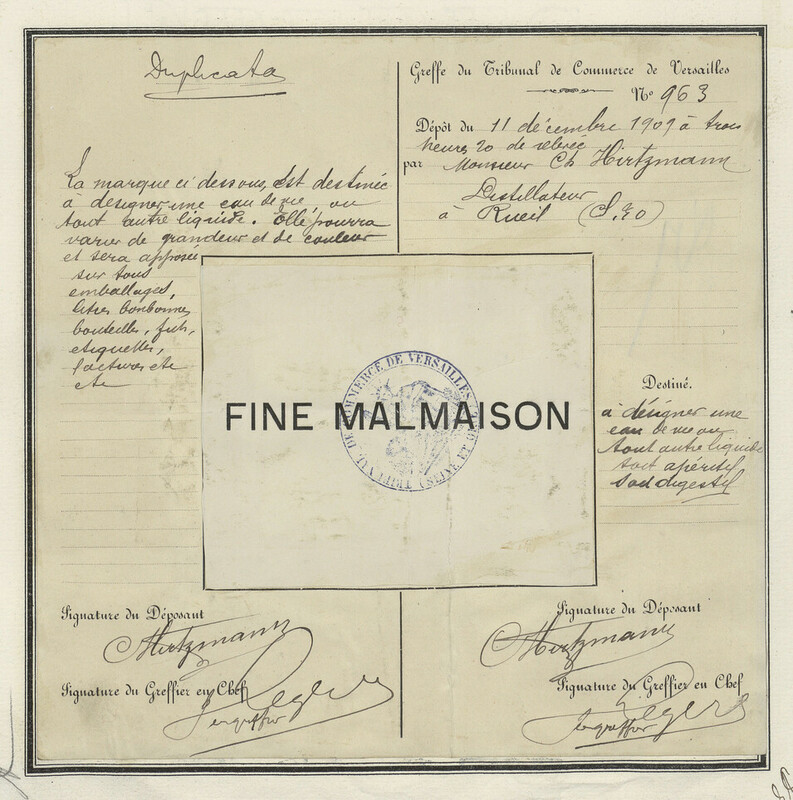 Duplicata
La marque ci dessous, est destinée
à désigner une eau de vie, ou
tout autre liquide. Elle pourra
varier de grandeur et de couleur
et sera apposée
sur tous
emballages,
litres bonbonnes
bouteilles, fûts,
etiquettes,
factures etc
etc
Greffe du Tribunal de Commerce de Versailles
No 963
Dépôt du 11 décembre 1909 à trois
heures 20 de relevée
par Monsieur Ch Hirtzmann
Distillateur
à Rueil (S.&O)
FINE MALMAISON
TRIBUNAL DE COMMERCE DE VERSAILLES
(SEINE ET
Destiné.
à désigner une
eau de vie ou
tout autre liquide
soit apéritif
soit digestif
Signature du Déposant
CHirtzmann
Signature du Greffier en Chef
Signature du Déposant
CHirtzmann
Signature du Greffier en Chef